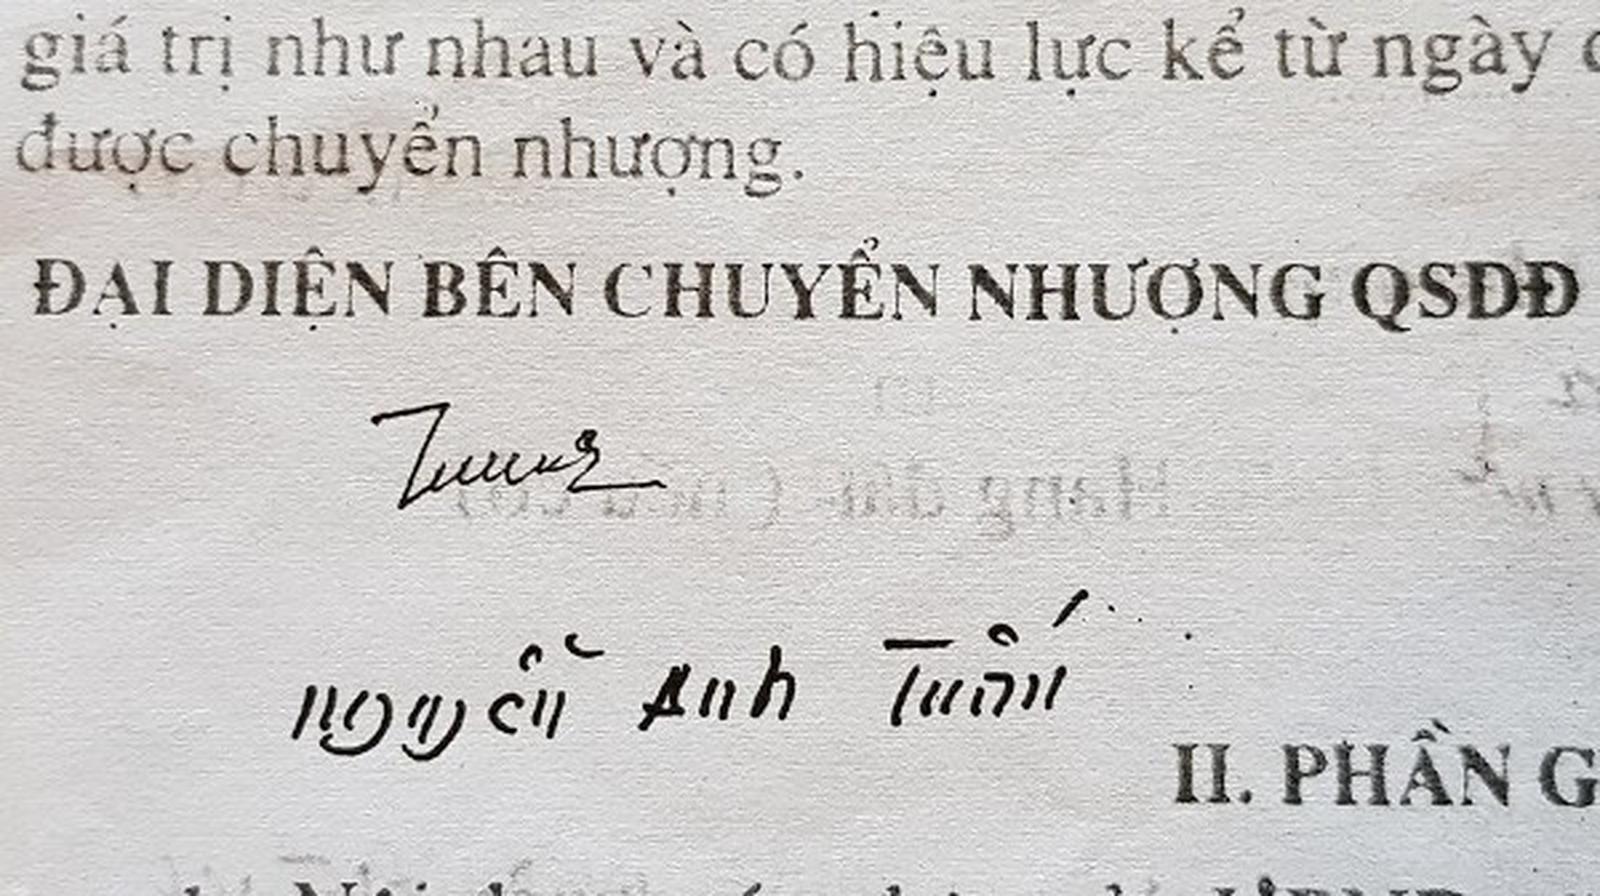 giá trị như nhau và có hiệu lực kể từ ngày
được chuyển nhượng.
ĐẠI DIỆN BÊN CHUYỂN NHƯỢNG QSDĐ
Nguyễn Anh Tuấn
II. PHẦN G